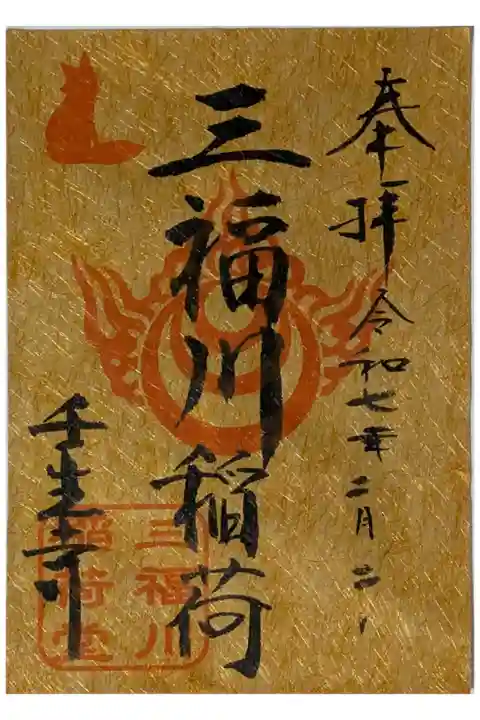 奉拝 令和七年二月二日
三福川稲荷
壬生寺
三福川
稲荷堂